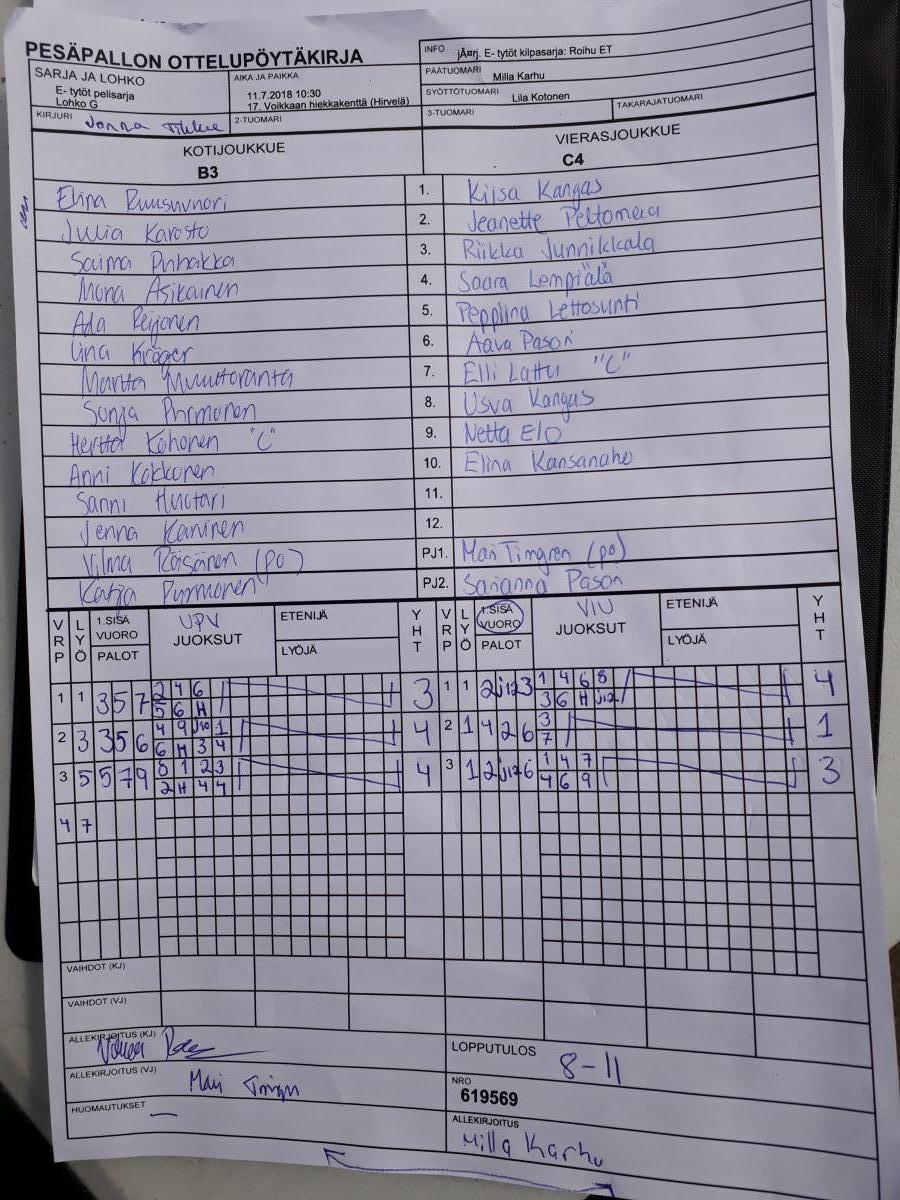 PESÄPALLON OTTELUPÖYTÄKIRJA
INFO jÃ¤rj. E- tytöt kilpasarja: Roihu ET
SARJA JA LOHKO
E- tytöt pelisarja
Lohko G
AIKA JA PAIKKA
11.7.2018 10:30
17. Voikkaan hiekkakenttä (Hirvelä)
PÄÄTUOMARI Milla Karhu
SYÖTTÖTUOMARI Lila Kotonen
KIRJURI Jonna
2-TUOMARI
3-TUOMARI
TAKARAJATUOMARI
KOTIJOUKKUE
B3
VIERASJOUKKUE
C4
Elina Ruusuvuori 1. Kiisa Kangas
Julia Karosto 2. Jeanette Peltomaa
Saima Puhakka 3. Riikka Junnikkala
Mona Asikainen 4. Saara Lempiälä
Ada Reijonen 5. Peppiina Lettosunti
Iina Kröger 6. Aava Pason
Martta Muuttoranta 7. Elli Lattu "C"
Sonja Purmonen 8. Usva Kangas
Hertta Kohonen "C" 9. Netta Elo
Anni Kokkonen 10. Elina Kansanaho
Sanni Huutari 11.
Jenna Kaninen 12.
Vilma Räisänen (po) PJ1. Mari Timgren (po)
Katja Purmonen PJ2. Sarianna Pason
VRP LYÖ 1.SISÄ VUORO UPV ETENIJÄ YHT VRP LYÖ 1.SISÄ VUORO VIU ETENIJÄ YHT
PALOT JUOKSUT LYÖJÄ PALOT JUOKSUT LYÖJÄ
1 1 3 5 7 2 4 6 3 1 1 2 j12 3 1 4 6 8 4
5 6 H 3 6 H j12
2 3 3 5 6 4 9 J10 1 4 2 1 4 2 6 3 1
6 H 3 4 7
3 5 5 7 9 8 1 2 3 4 3 1 2 j12 6 1 4 7 3
2 H 4 4 4 6 9
4 7
VAIHDOT (KJ)
VAIHDOT (VJ)
ALLEKIRJOITUS (KJ)
ALLEKIRJOITUS (VJ) Mari Timgren
LOPPUTULOS 8-11
NRO
619569
HUOMAUTUKSET —
ALLEKIRJOITUS
Milla Karhu